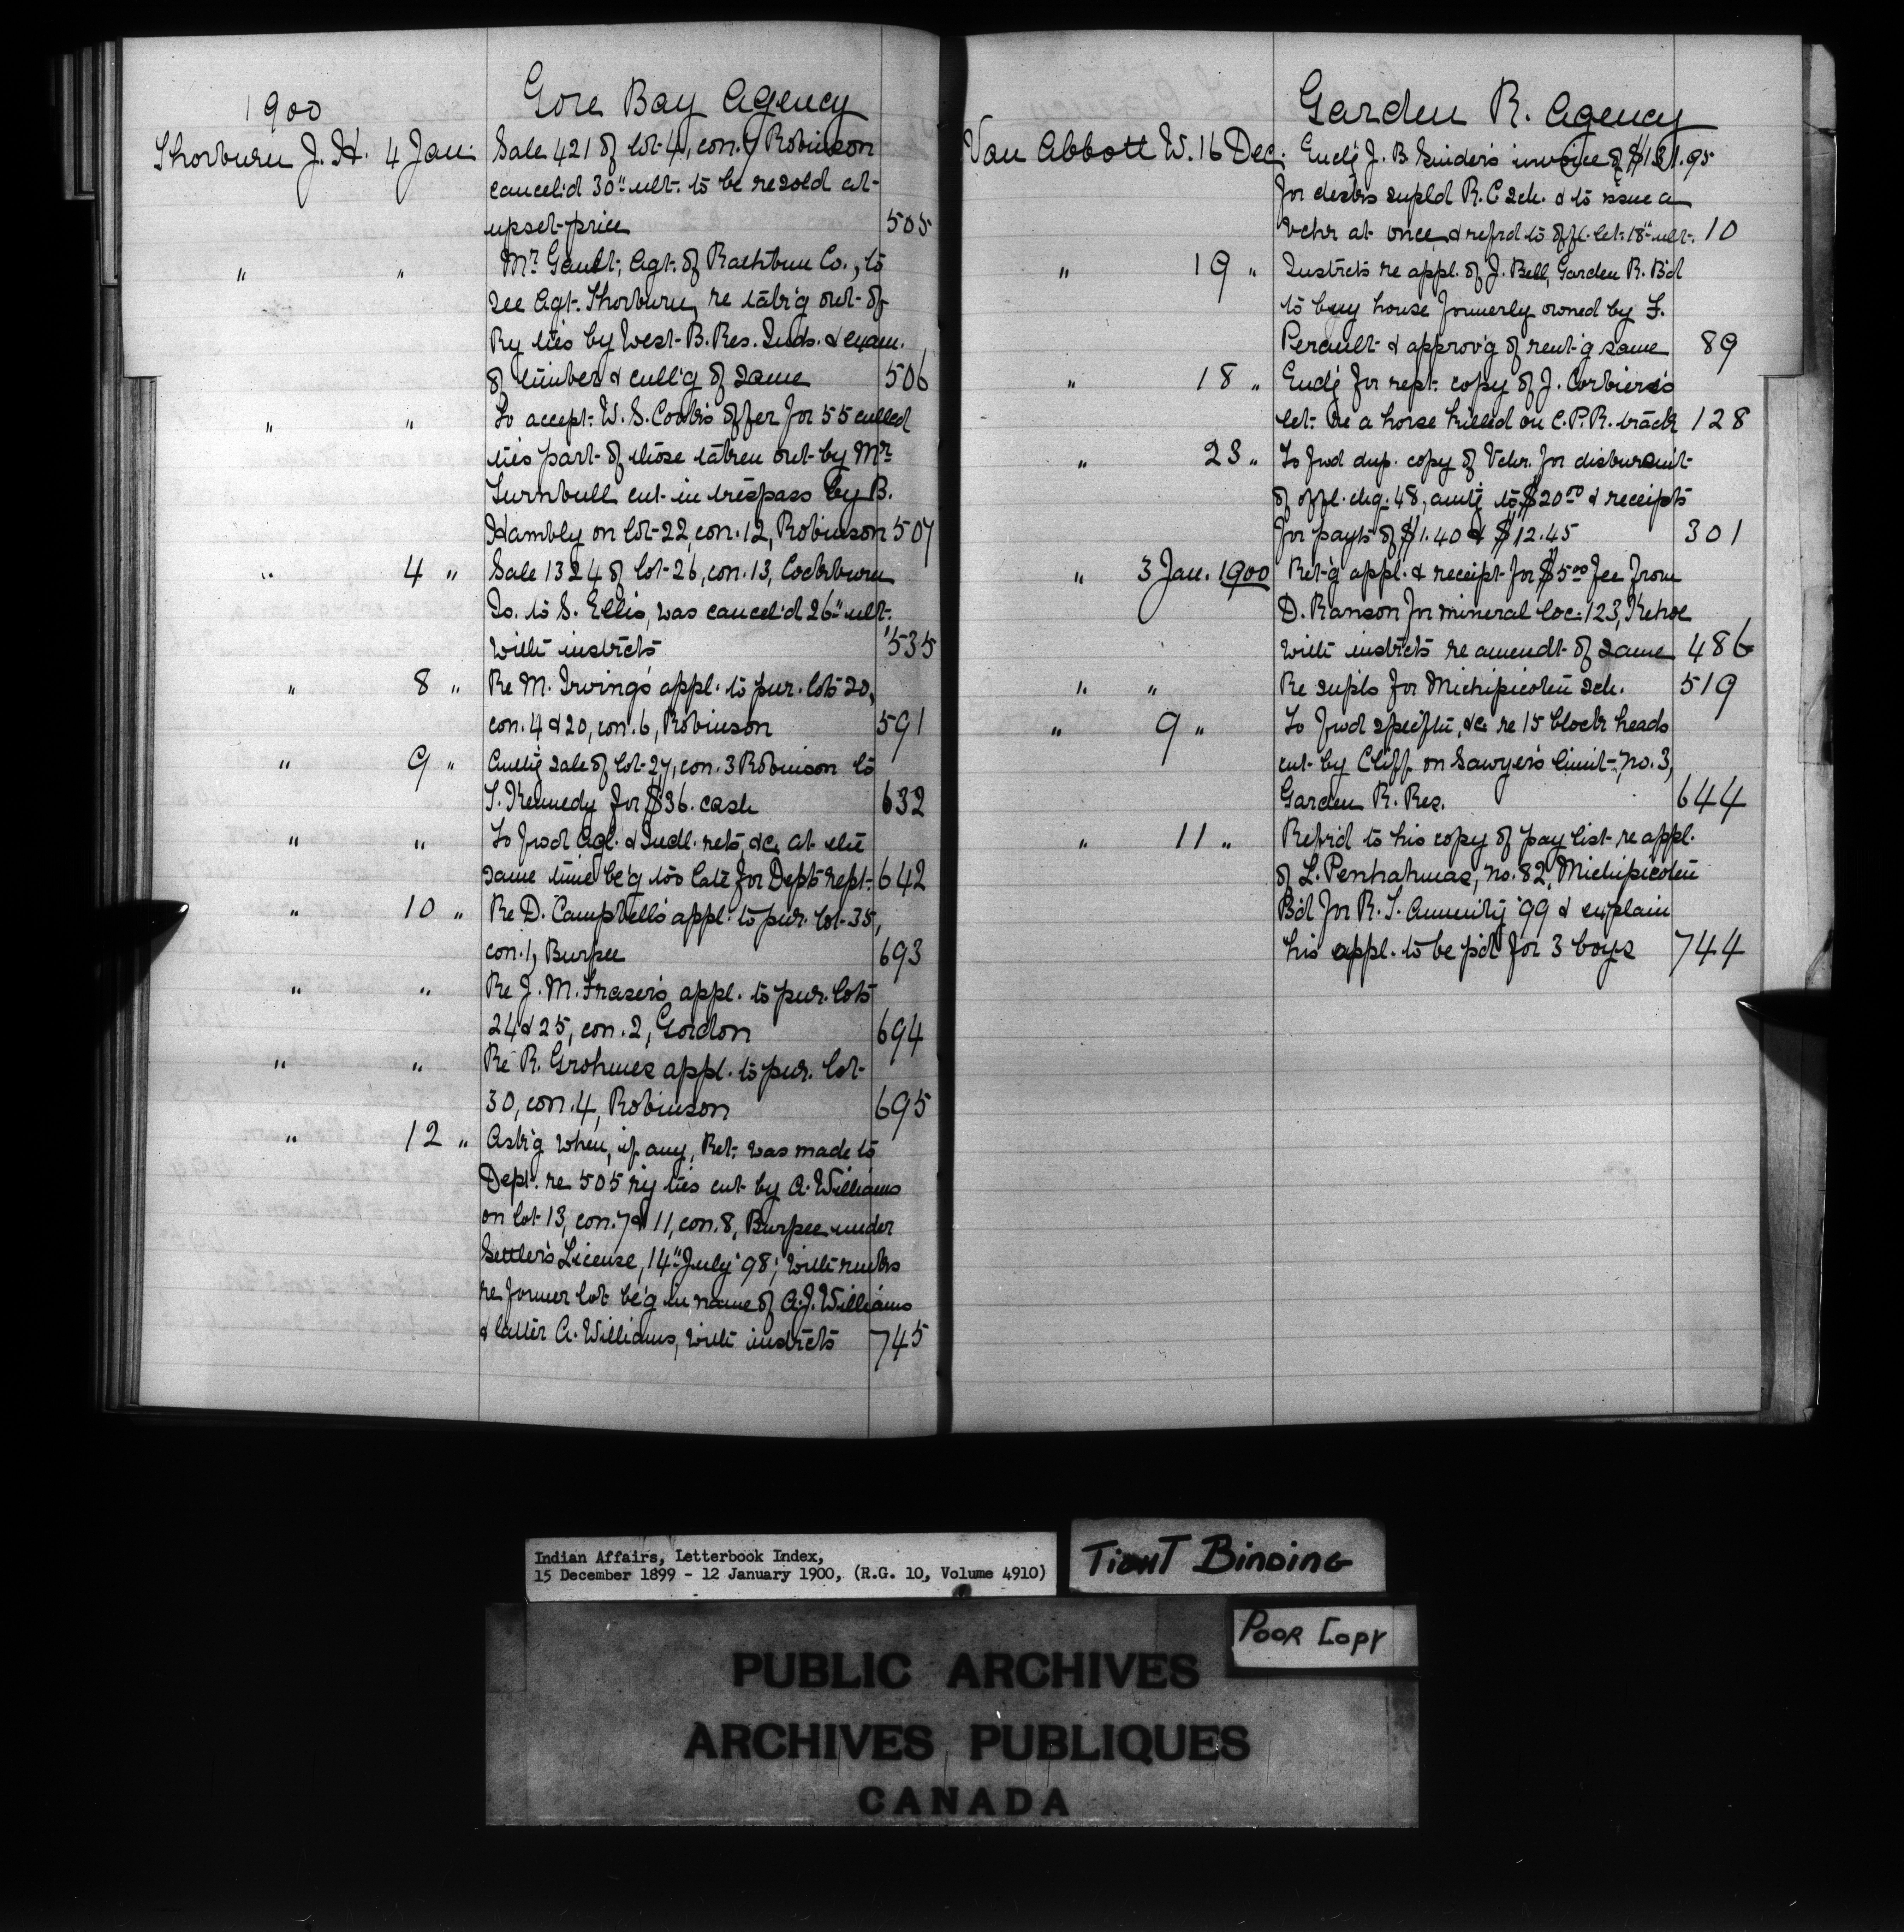 1900
Gore Bay Agency
Thorburn J. H. 4 Jan. Sale 421 of lot 4, con. 9 Robinson
cancel'd 30" ult. to be resold at
upset price 505
" " Mr. Gault, Agt. of Rathbun Co., to
see Agt. Thorburn re tak'g out of
Ry ties by West B. Res. Inds. & exam.
of timber & cull'g of same 506
" " To accept W. S. Cook's offer for 55 culled
ties part of those taken out by Mr.
Turnbull cut in trespass by B.
Hambly on lot 22, con. 12, Robinson 507
" 4 " Sale 1324 of lot 26, con. 13, Cockburn
Is. to S. Ellis, was cancel'd 26" ult.
with instrcts 535
" 8 " Re M. Irving's appl. to pur. lots 20,
con. 4 & 20, con. 6, Robinson 591
" 9 " sale of lot 27, con. 3 Robinson to
T. Kennedy for $36. cash 632
" " To fwd Agl. & Indl. rets, &c. at the
same time be'g too late for Dept's rept. 642
" 10 " Re D. Campbell's appl. to pur. lot 35,
con. 1, Burpee 693
" " Re J. M. Fraser's appl. to pur. lots
24 & 25, con. 2, Gordon 694
" " Re R. Grohmes appl. to pur. lot
30, con. 4, Robinson 695
" 12 " Ask'g when, if any, Ret. was made to
Dept. re 505 ry ties cut by A. Williams
on lot 13, con. 7 & 11, con. 8, Burpee under
Settler's License, 14" July '98; with rmks
re former lot be'g in name of A. J. Williams
& latter A. Williams, with instrcts 745
Garden R. Agency
Van Abbott W. 16 Dec. Encl'g J. B. Snider's invoice of $131.95
for desks suppld R. C. sch. & to issue a
Vchr at once & refrd to offl. let. 18" ult. 10
" 19 " Instrcts re appl. of J. Bell, Garden R. B'd
to buy house formerly owned by F.
Perault & approv'g of rent'g same 89
" 18 " Encl'g for rept. copy of J. Corbiere's
let. re a horse killed on C.P.R. track 128
" 23 " To fwd dup. copy of Vchr. for disbursmt
of offl. chq. 48, amt'g to $20.00 & receipts
for payts of $1.40 & $12.45 301
" 3 Jan. 1900 Ret'g appl. & receipt for $5.00 fee from
D. Ranson for mineral loc. 123,
with instrcts re amendt. of same 486
" " Re supls for Michipicoten sch. 519
" 9 " To fwd speciftn, &c. re 15 block heads
cut by Cliff on Sawyer's limit, No. 3,
Garden R. Res. 644
" 11 " Refr'd to his copy of pay list re appl.
of L. Penhahmas, No. 82, Michipicoten
B'd for R. T. Annuity '99 & explain
his appl. to be p'd for 3 boys 744
Indian Affairs, Letterbook Index,
15 December 1899 - 12 January 1900, (R.G. 10, Volume 4910)
TIGHT BINDING
POOR COPY
PUBLIC ARCHIVES
ARCHIVES PUBLIQUES
CANADA